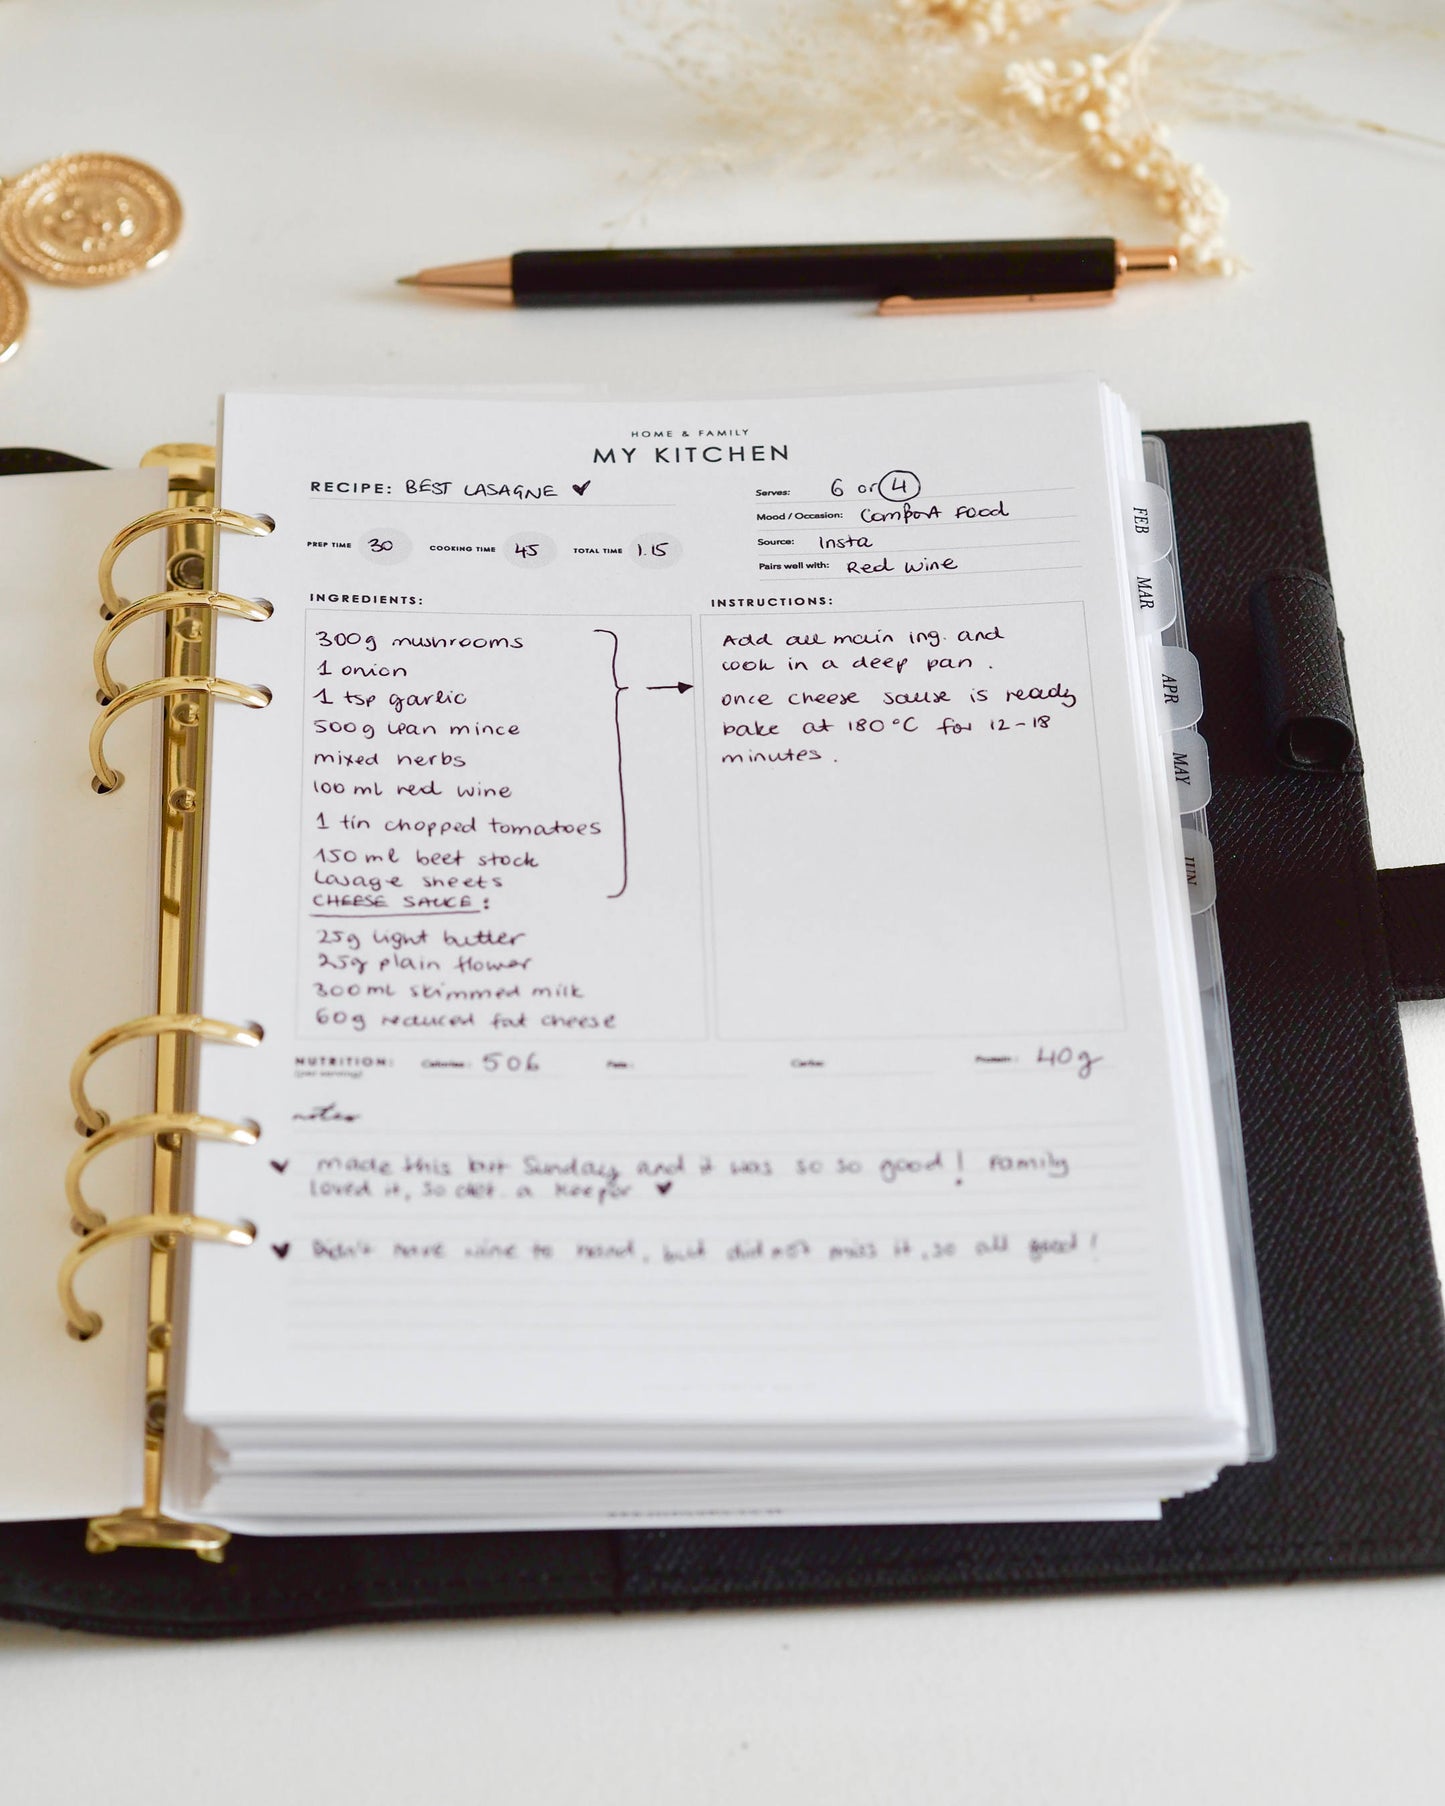 HOME & FAMILY
MY KITCHEN
RECIPE: BEST LASAGNE ♥
Serves: 6 or 4
Mood / Occasion: Comfort Food
Source: Insta
Pairs well with: Red wine
PREP TIME 30 COOKING TIME 45 TOTAL TIME 1.15
INGREDIENTS:
300g mushrooms
1 onion
1 tsp garlic
500g lean mince
mixed herbs
100 ml red wine
1 tin chopped tomatoes
150 ml beef stock
Lasage sheets
CHEESE SAUCE:
25g light butter
25g plain flower
300 ml skimmed milk
60g reduced fat cheese
INSTRUCTIONS:
Add all main ing. and
cook in a deep pan.
once cheese sause is ready
bake at 180°C for 12-18
minutes.
NUTRITION: Calories: 506 Fats: Carbs: Protein: 40g
(per serving)
notes
♥ made this last Sunday and it was so so good! Family
loved it, so def. a keeper ♥
♥ Didn't have wine to hand, but did not miss it, so all good!
FEB
MAR
APR
MAY
JUN